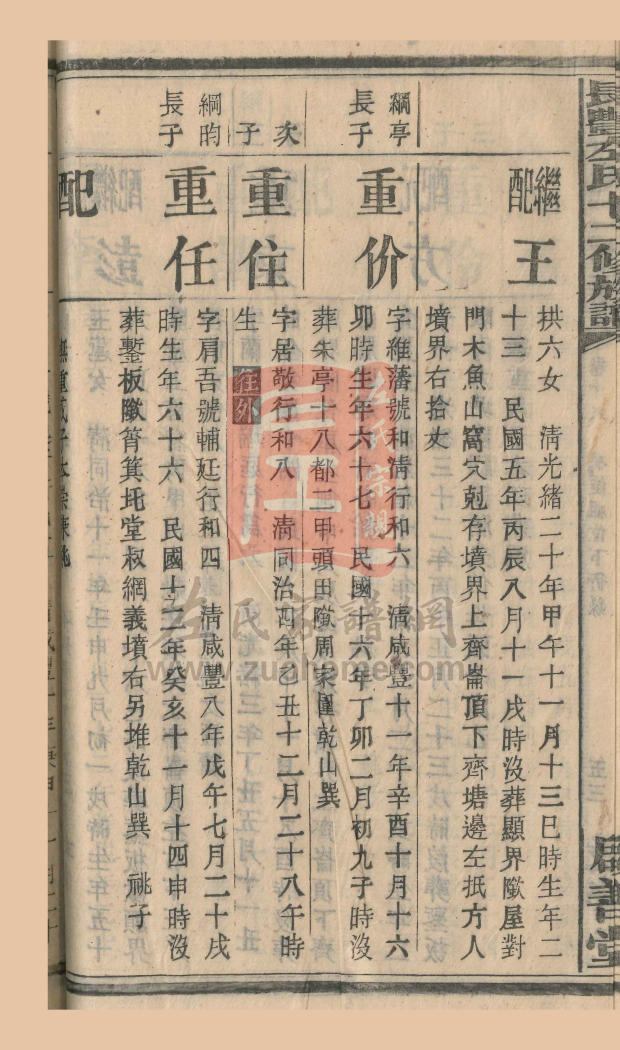 長豐左氏十二修族譜
啟善堂
繼配 王
拱六女 清光緒二十年甲午十一月十三巳時生年二
十三 民國五年丙辰八月十一戌時沒葬顯界隞屋對
門木魚山窩穴剋存墳界上齊崙頂下齊塘邊左抵方人
墳界右拾丈
綱亭
長子
重价
字維藩號和清行和六 清咸豐十一年辛酉十月十六
卯時生年六十七 民國十六年丁卯二月初九子時沒
葬朱亭十八都二甲頭田隞周家園乾山巽
次子
重住
字居敬行和八 清同治四年乙丑十二月二十八午時
生 往外
綱昀
長子
重任
字肩吾號輔廷行和四 清咸豐八年戊午七月二十戌
時生年六十六 民國十二年癸亥十一月十四申時沒
葬鏨板隞筲箕坉堂叔綱義墳右另堆乾山巽 祧子
配
左氏家譜網
www.zuohome.com